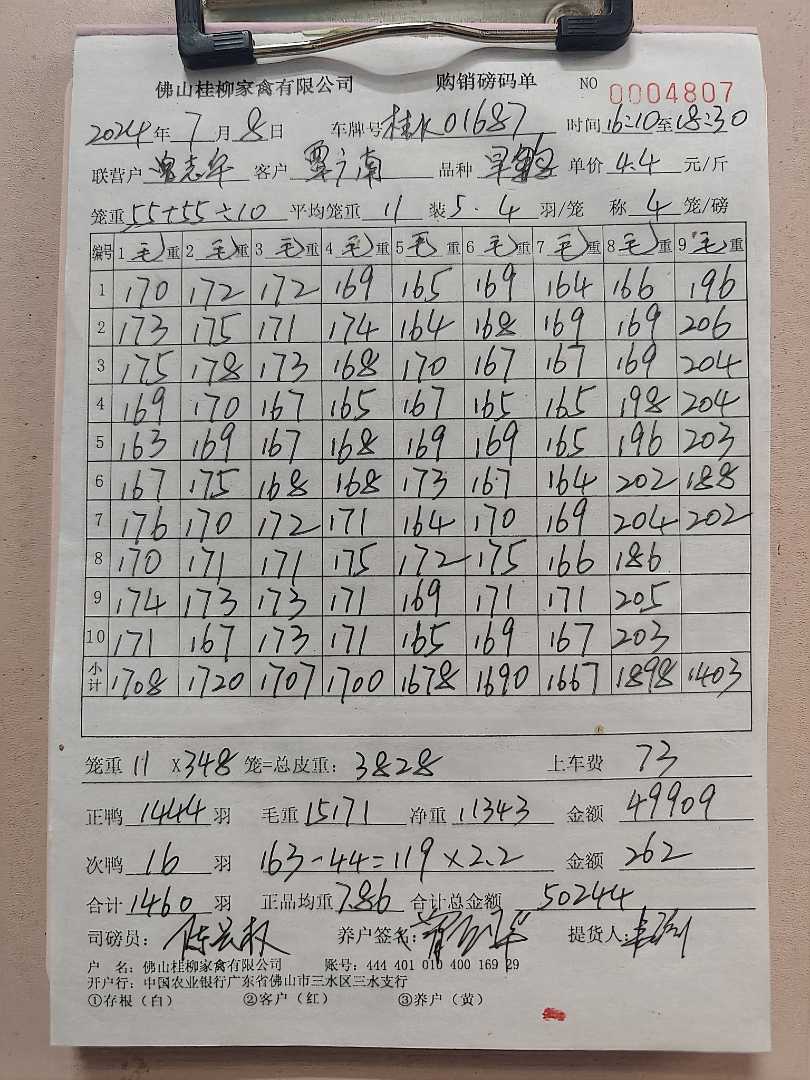 佛山桂柳家禽有限公司 购销磅码单 NO 0004807
2024年7月8日 车牌号桂K01687 时间16:10至18:30
联营户曾志华 客户覃广南 品种 单价4.4元/斤
笼重55+55÷10 平均笼重11 装5.4羽/笼 称4笼/磅
编号 1毛重 2毛重 3毛重 4毛重 5毛重 6毛重 7毛重 8毛重 9毛重
1 170 172 172 169 165 169 164 166 196
2 173 175 171 174 164 168 169 169 206
3 175 178 173 168 170 167 167 169 204
4 169 170 167 165 167 165 165 198 204
5 163 169 167 168 169 169 165 196 203
6 167 175 168 168 173 167 164 202 188
7 176 170 172 171 164 170 169 204 202
8 170 171 171 175 172 175 166 186
9 174 173 173 171 169 171 171 205
10 171 167 173 171 165 169 167 203
小计 1708 1720 1707 1700 1678 1690 1667 1898 1403
笼重11X348笼=总皮重:3828 上车费 73
正鸭1444羽 毛重15171 净重11343 金额49909
次鸭16羽 163-44=119×2.2 金额262
合计1460羽 正品均重7.86 合计总金额50244
司磅员: 养户签名: 提货人:
户 名:佛山桂柳家禽有限公司 账号:444 401 010 400 169 29
开户行:中国农业银行广东省佛山市三水区三水支行
①存根(白) ②客户(红) ③养户(黄)